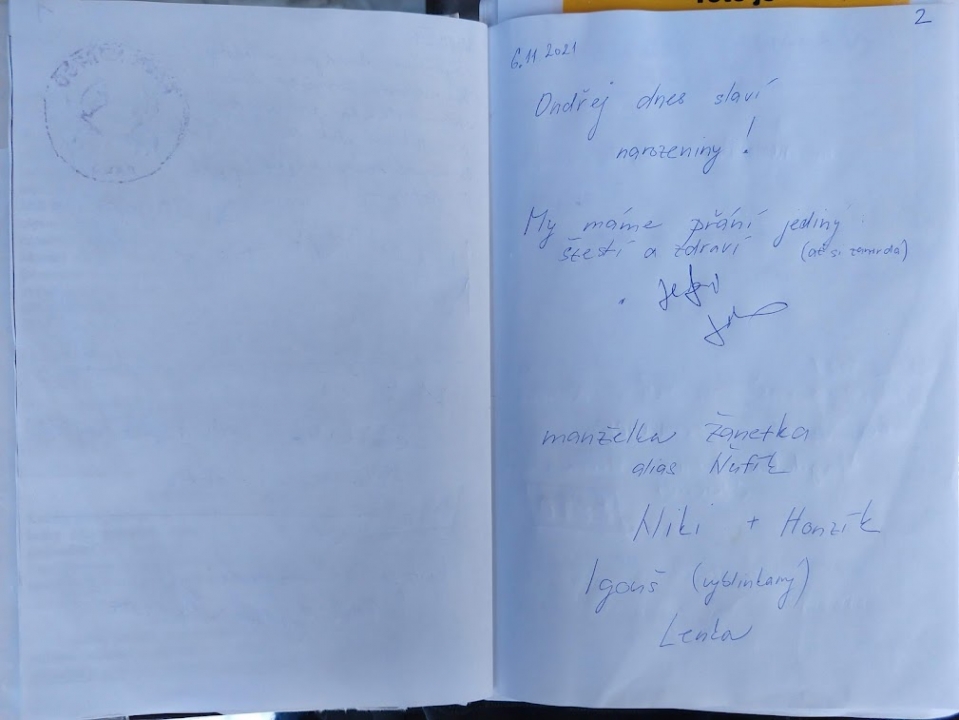 2
6.11 2021
Ondřej dnes slaví
narozeniny!
My máme přání jediný:
štestí a zdraví (ať si zamrda)
manželka Žanetka
alias Ňufík
Niki + Honzík
Igouš (vyblinkaný)
Lenka